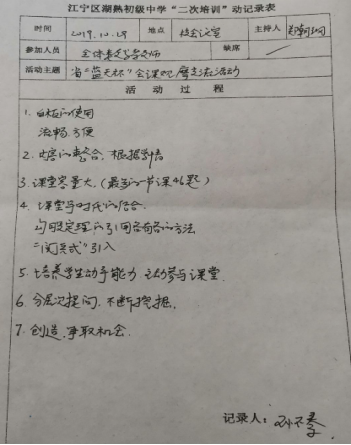 江宁区湖熟初级中学“二次培训”动记录表
时间 2019.10.29 地点 校会议室 主持人
参加人员 全体数学老师 缺席 /
活动主题 省“蓝天杯”会课观摩活动
活动过程
1. 白板的使用
流畅.方便
2. 内容的整合, 根据学情
3. 课堂容量大, (最多的一节课46题)
4. 课堂与时代的结合.
勾股定理的引用各有各的方法
“闯关式”引入
5. 培养学生动手能力 主动参与课堂
6. 分层次提问, 不断挖掘.
7. 创造.争取机会.
记录人: